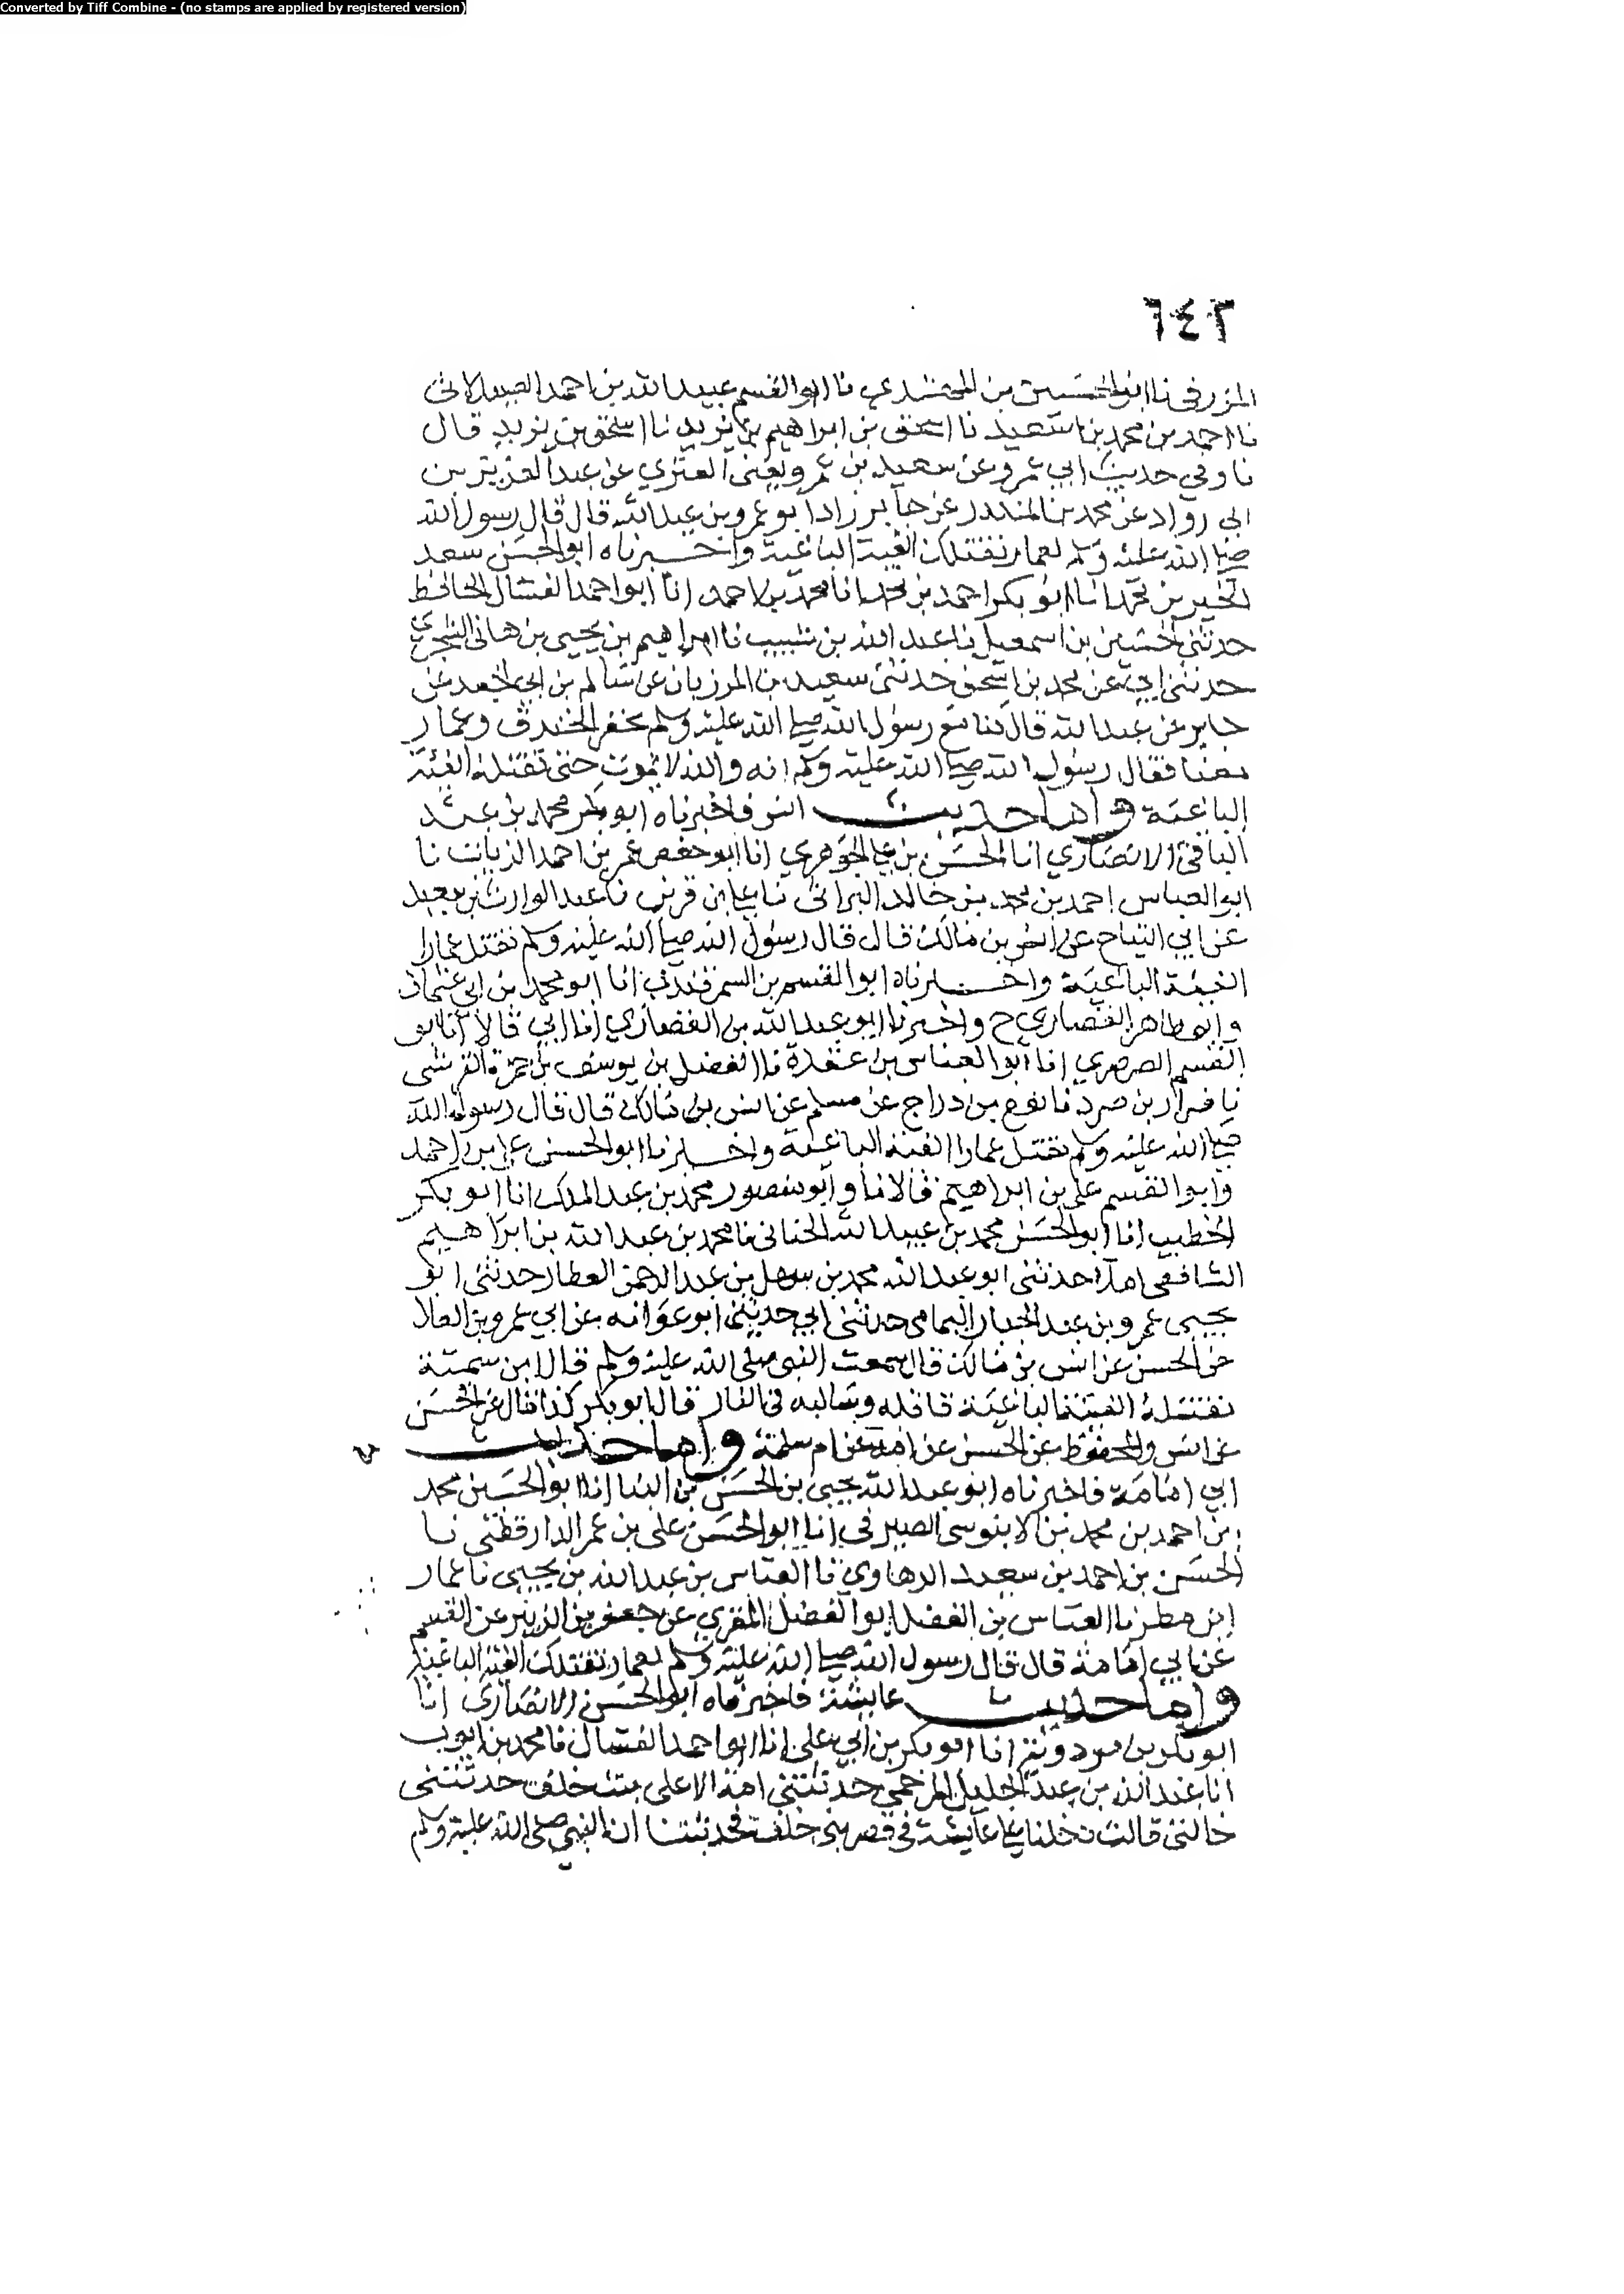 Converted by Tiff Combine - (no stamps are applied by registered version)
٦٤٢
المزرفي نا ابو الحسين بن المهتدي نا ابو القسم عبيد الله بن احمد الصيدلاني
نا احمد بن محمد بن سعيد نا اسحق بن ابراهيم بن يزيد نا اسحق بن يزيد قال
نا وفي حديث ابي عمرو عن سعيد بن عمرو يعني العنزي عن عبد العزيز بن
ابي رواد عن محمد بن المنكدر عن جابر زاد ابو عمرو بن عبد الله قال قال رسول الله
صلى الله عليه وسلم لعمار تقتلك الفية الباغية واخبرناه ابو الحسن سعد
الخير بن محمد انا ابو بكر احمد بن محمد انا محمد بن احمد انا ابو احمد العسال الحافظ
حدثني الحسين بن اسمعيل نا عبد الله بن شبيب نا ابراهيم بن يحيى بن هاني الشجري
حدثني ابي عن محمد بن اسحق حدثني سعيد بن المرزبان عن سالم بن ابي الجعد عن
جابر عن عبد الله قال كنا مع رسول الله صلى الله عليه وسلم نحفر الخندق وعمار
معنا فقال رسول الله صلى الله عليه وسلم انه والله لا يموت حتى تقتله الفئة
الباغية واما حديث انس فاخبرناه ابو بكر محمد بن عبد
الباقي الانصاري انا الحسن بن علي الجوهري انا ابو حفص عمر بن احمد الزيات نا
ابو العباس احمد بن محمد بن خالد البراثي نا علي بن قرين نا عبد الوارث بن سعيد
عن ابي التياح عن انس بن مالك قال قال رسول الله صلى الله عليه وسلم تقتل عمارا
الفئة الباغية واخبرناه ابو القسم بن السمرقندي انا ابو محمد بن ابي عثمان
وابو طاهر القصاري ح واخبرنا ابو عبد الله بن القصاري انا ابي قالا انا ابو
القسم الصرصري انا ابو العباس بن عقدة نا الفضل بن يوسف بن حمزة القرشي
نا ضرار بن صرد نا نوح بن دراج عن مسلم عن انس بن مالك قال قال رسول الله
صلى الله عليه وسلم تقتل عمارا الفئة الباغية واخبرنا ابو الحسن علي بن احمد
وابو القسم علي بن ابراهيم قالا نا وابو منصور محمد بن عبد الملك انا ابو بكر
الخطيب انا ابو الحسن محمد بن عبيد الله الحنائي نا محمد بن عبد الله بن ابراهيم
الشافعي املا حدثني ابو عبد الله محمد بن سهل بن عبد الرحمن العطار حدثني ابو
يحيى عمرو بن عبد الجبار اليمامي حدثني ابي حدثني ابو عوانه عن ابي عمرو بن العلا
عن الحسن عن انس بن مالك قال سمعت النبي صلى الله عليه وسلم قال ابن سمية
تقتله الفئة الباغية قاتله وسالبه في النار قال ابو بكر كذا قال عن الحسن
عن انس والمحفوظ عن الحسن عن امه عن ام سلمة واما حديث
ابي امامة فاخبرناه ابو عبد الله يحيى بن الحسن بن البنا انا ابو الحسين محمد
بن احمد بن محمد بن الابنوسي الصيرفي انا ابو الحسن علي بن عمر الدارقطني نا
الحسن بن احمد بن سعيد الرهاوي نا العباس بن عبد الله بن يحيى نا عمار
ابن مطر نا العباس بن الفضل ابو الفضل المقري عن جعفر بن الزبير عن القسم
عن ابي امامة قال قال رسول الله صلى الله عليه وسلم لعمار تقتلك الفئة الباغية
واما حديث عايشة فاخبرناه ابو الحسن الانصاري انا
ابو بكر بن مردويه انا ابو بكر بن ابي علي انا ابو احمد العسال نا محمد بن ايوب
انا عبد الله بن عبد الجليل حدثتني امة الاعلى بنت خلف حدثتني
خالتي قالت دخلنا على عايشة في قصر بني خلف فحدثتنا ان النبي صلى الله عليه وسلم